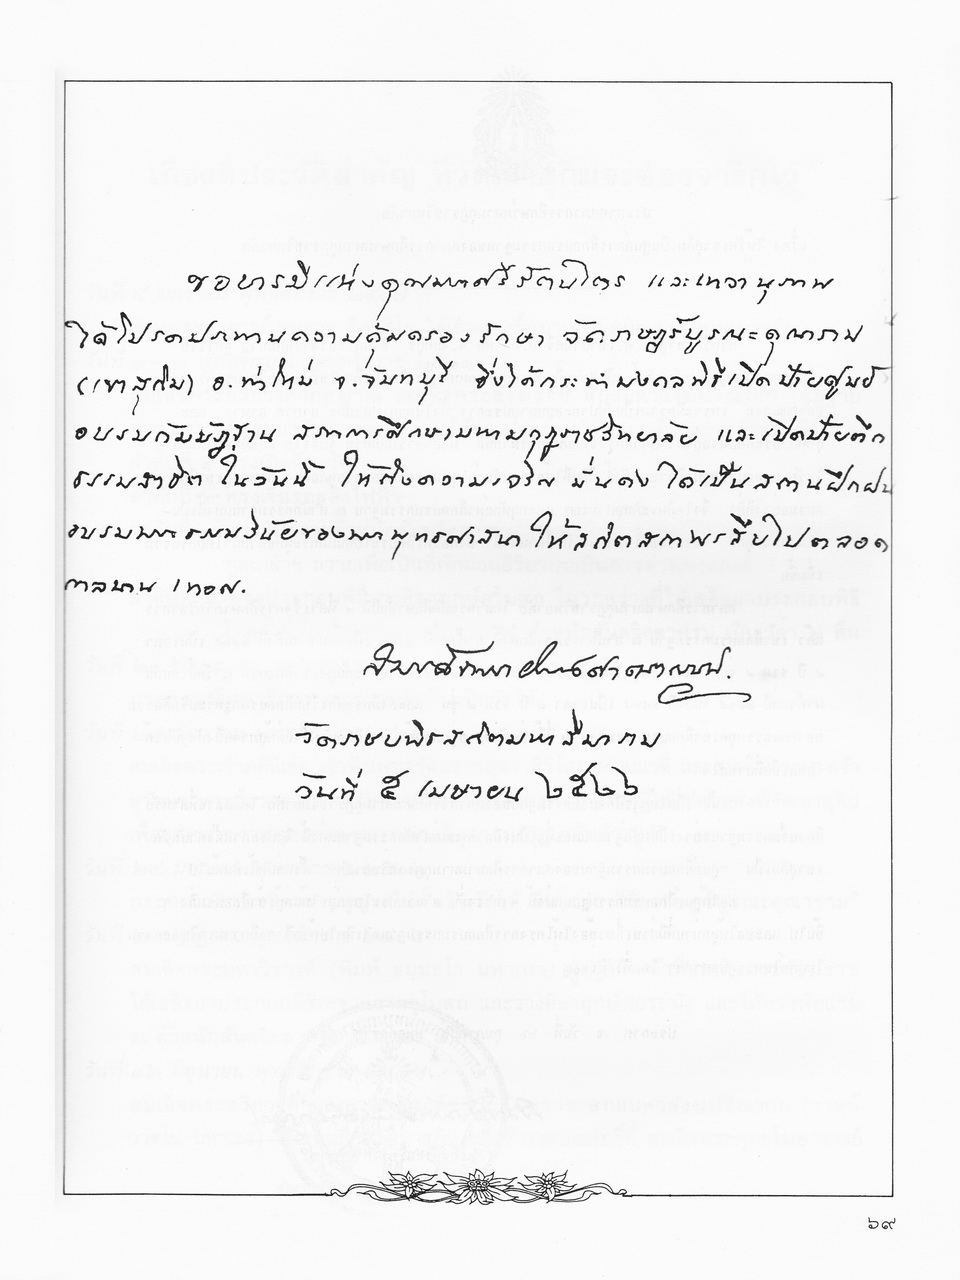 ขอบารมีแห่งคุณพระศรีรัตนไตร และเทวานุภาพ
ได้โปรดประทานความคุ้มครองรักษา วัดราษฎร์บูรณะคุณาราม
(เขาสุกิม) อ.ท่าใหม่ จ.จันทบุรี ซึ่งได้กระทำมงคลพิธีเปิดป้ายศูนย์
อบรมกัมมัฏฐาน สภาการศึกษามหามกุฏราชวิทยาลัย และเปิดป้ายตึก
ธรรมสาธิต ในวันนี้ ให้ถึงความเจริญ มั่นคง ได้เป็นสถานฝึกฝน
อบรมพระธรรมวินัยของพระพุทธศาสนา ให้สถิตสถาพรสืบไปตลอด
กาลนาน เทอญ.
วัดราชบพิธสถิตมหาสีมาราม
วันที่ ๕ เมษายน ๒๕๒๖
๖๙